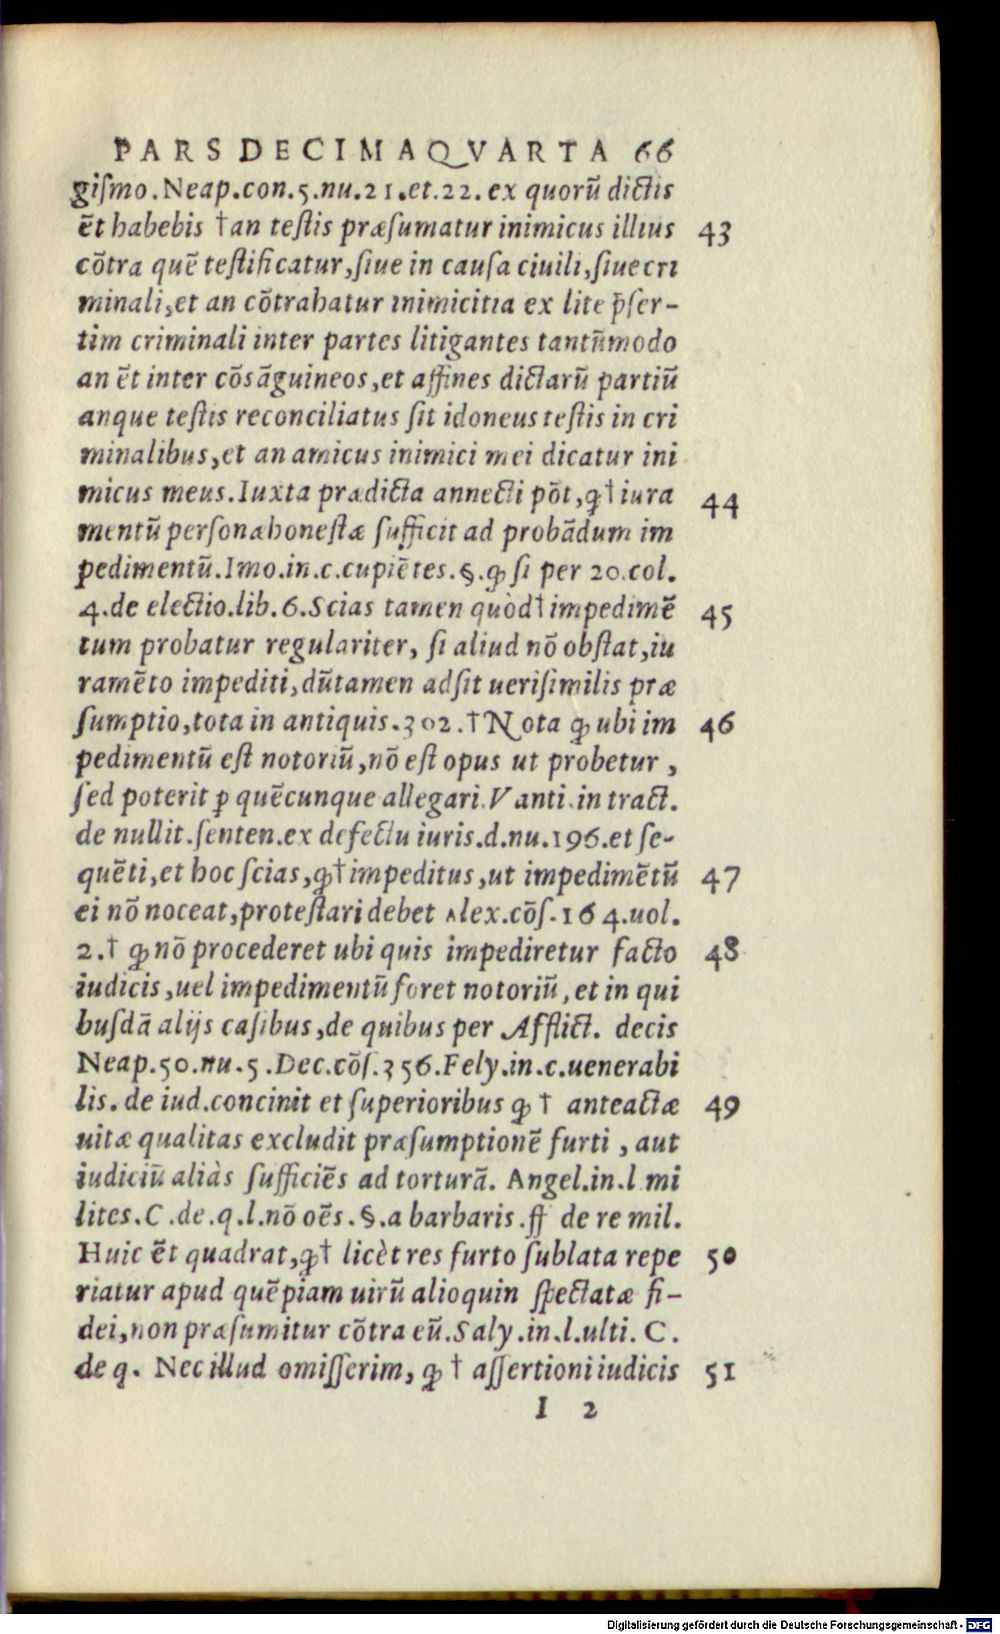 PARS DECIMAQVARTA 66
giſmo.Neap.con.5.nu.21.et.22. ex quorũ dictis
ẽt habebis †an teſtis præſumatur inimicus illius 43
cõtra quẽ teſtificatur,ſiue in cauſa ciuili,ſiue cri
minali,et an cõtrahatur inimicitia ex lite p̃ſer-
tim criminali inter partes litigantes tantũmodo
an ẽt inter cõsãguineos,et affines dictarũ partiũ
anque teſtis reconciliatus ſit idoneus teſtis in cri
minalibus,et an amicus inimici mei dicatur ini
micus meus.Iuxta prædicta annecti põt,ꝙ†iura 44
mentũ personæ honeſtæ ſufficit ad probãdum im
pedimentũ.Imo.in.c.cupiẽtes.§.ꝙ ſi per 20.col.
4.de electio.lib.6.Scias tamen quòd†impedimẽ 45
tum probatur regulariter, ſi aliud nõ obſtat,iu
ramẽto impediti,dũtamen adſit ueriſimilis præ
ſumptio,tota in antiquis.302.†Nota ꝙ ubi im 46
pedimentũ eſt notoriũ,nõ eſt opus ut probetur ,
ſed poterit ꝑ quẽcunque allegari.Vanti.in tract.
de nullit.ſenten.ex defectu iuris.d.nu.196.et ſe-
quẽti,et hoc ſcias,ꝙ†impeditus,ut impedimẽtũ 47
ei nõ noceat,proteſtari debet Alex.cõſ.164.uol.
2.† ꝙ nõ procederet ubi quis impediretur facto 48
iudicis,uel impedimentũ foret notoriũ,et in qui
buſdã alijs caſibus,de quibus per Afflict. decis
Neap.50.nu.5.Dec.cõſ.356.Fely.in.c.uenerabi
lis. de iud.concinit et ſuperioribus ꝙ † anteactæ 49
uitæ qualitas excludit præſumptionẽ furti , aut
iudiciũ aliàs ſufficiẽs ad torturã. Angel.in.l mi
lites.C.de.q.l.nõ oẽs.§.a barbaris.ff de re mil.
Huic ẽt quadrat,ꝙ† licèt res furto ſublata repe 50
riatur apud quẽpiam uirũ alioquin ſpectatæ fi-
dei,non præſumitur cõtra eũ.Saly.in.l.ulti. C.
de q. Nec illud omiſſerim, ꝙ † aſſertioni iudicis 51
I 2
Digitalisierung gefördert durch die Deutsche Forschungsgemeinschaft - DFG